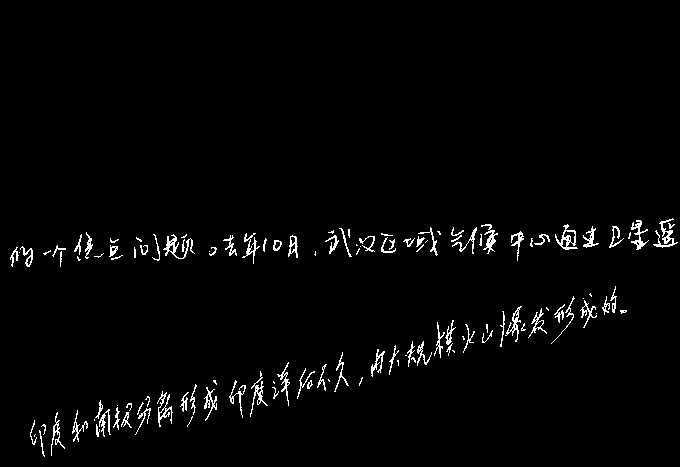 的一个焦点问题。去年10月，武汉区域气候中心通过卫星遥
印度和南极分离形成印度洋后不久，由大规模火山爆发形成的。